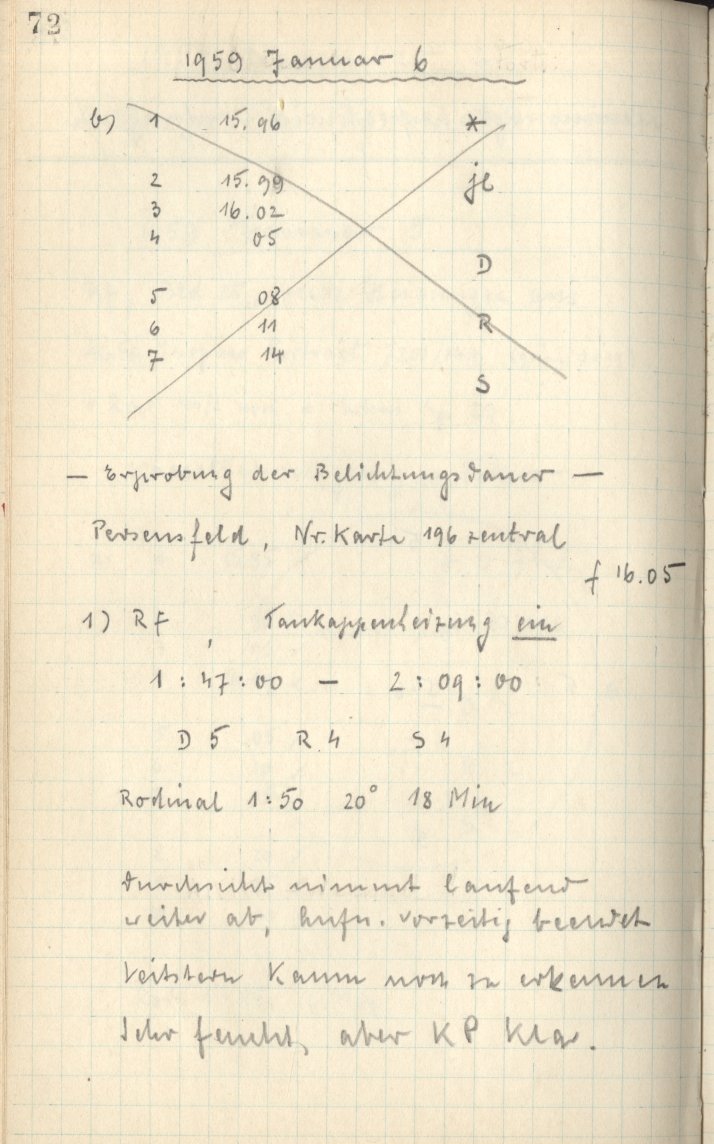 72
1959 Januar 6
b) 1 15.96 *
2 15.99 jl
3 16.02
4 05
D
5 08
6 11 R
7 14
S
— Erprobung der Belichtungsdauer —
Perseusfeld, Nr. Karte 196 zentral
f 16.05
1) RF, Taukappenheizung ein
1:47:00 — 2:09:00
D 5 R 4 S 4
Rodinal 1:50 20° 18 Min
Durchsicht nimmt laufend
weiter ab, Aufn. vorzeitig beendet
Leitstern kaum noch zu erkennen
Sehr feucht, aber KP klar.